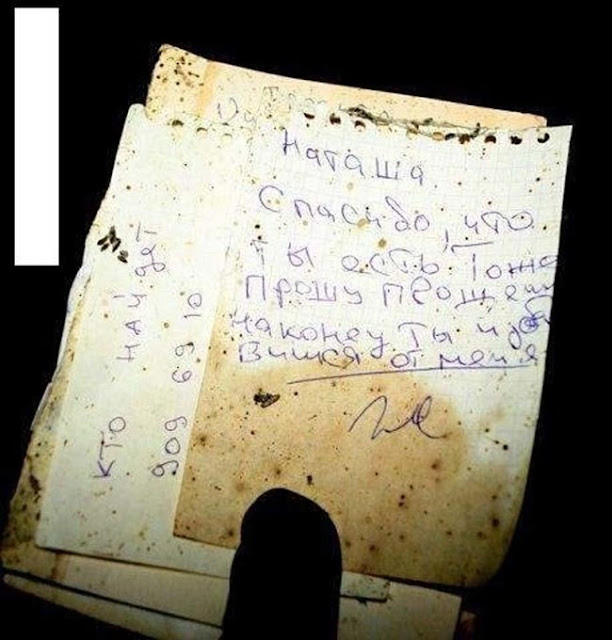 Наташа
Спасибо, что
ты есть. Тоже
Прошу прощени
наконец ты изб
вишся от меня
КТО НАЙДЕТ
909 69 10